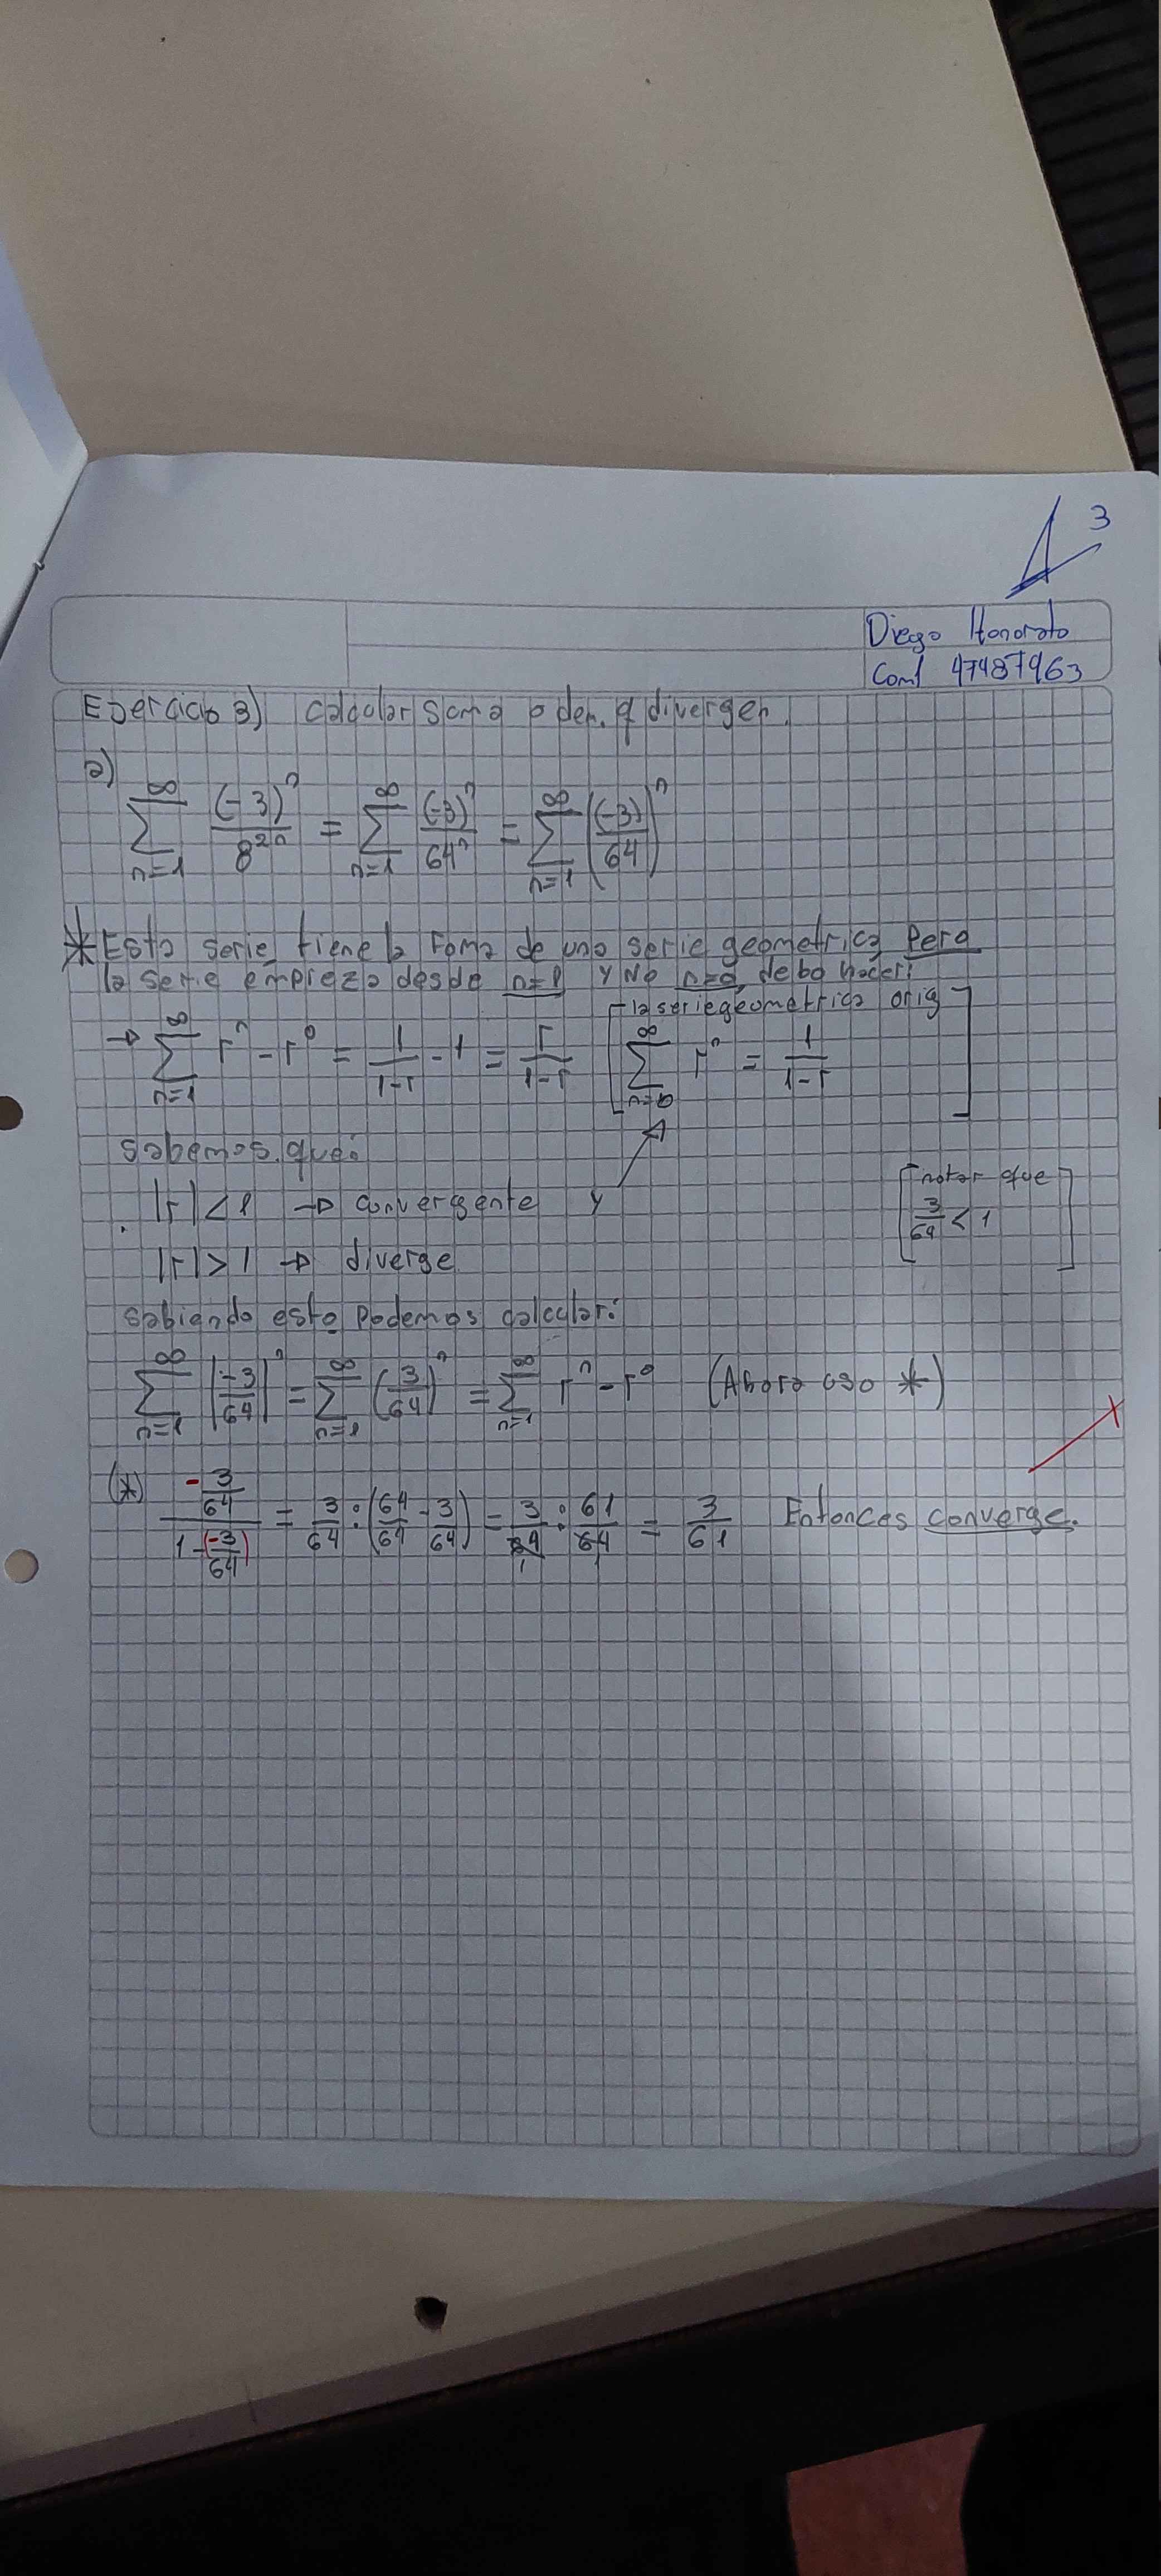 3
Diego Honorato
Com1 47487963
Ejercicio 3) calcular suma o dem. q divergen.
a)
∞∑n=1 (-3)^n / 8^{2n} = ∞∑n=1 (-3)^n / 64^n = ∞∑n=1 ((-3)/64)^n
* Esta serie tiene la forma de una serie geometrica pero
la serie empieza desde n=1 y no n=0, debo hacer:
→ ∞∑n=1 r^n - r^0 = 1/(1-r) - 1 = r/(1-r) [la serie geometrica orig ∞∑n=0 r^n = 1/(1-r)]
sabemos que:
|r| < 1 → convergente y
[notar que 3/64 < 1]
|r| > 1 → diverge
sabiendo esto podemos calcular:
∞∑n=1 |-3/64|^n = ∞∑n=1 (3/64)^n = ∞∑n=1 r^n - r^0 (Ahora uso *)
(*) (-3/64) / (1-(-3/64)) = 3/64 : (64/64 - 3/64) = 3/64 : 61/64 = 3/61 Entonces converge.